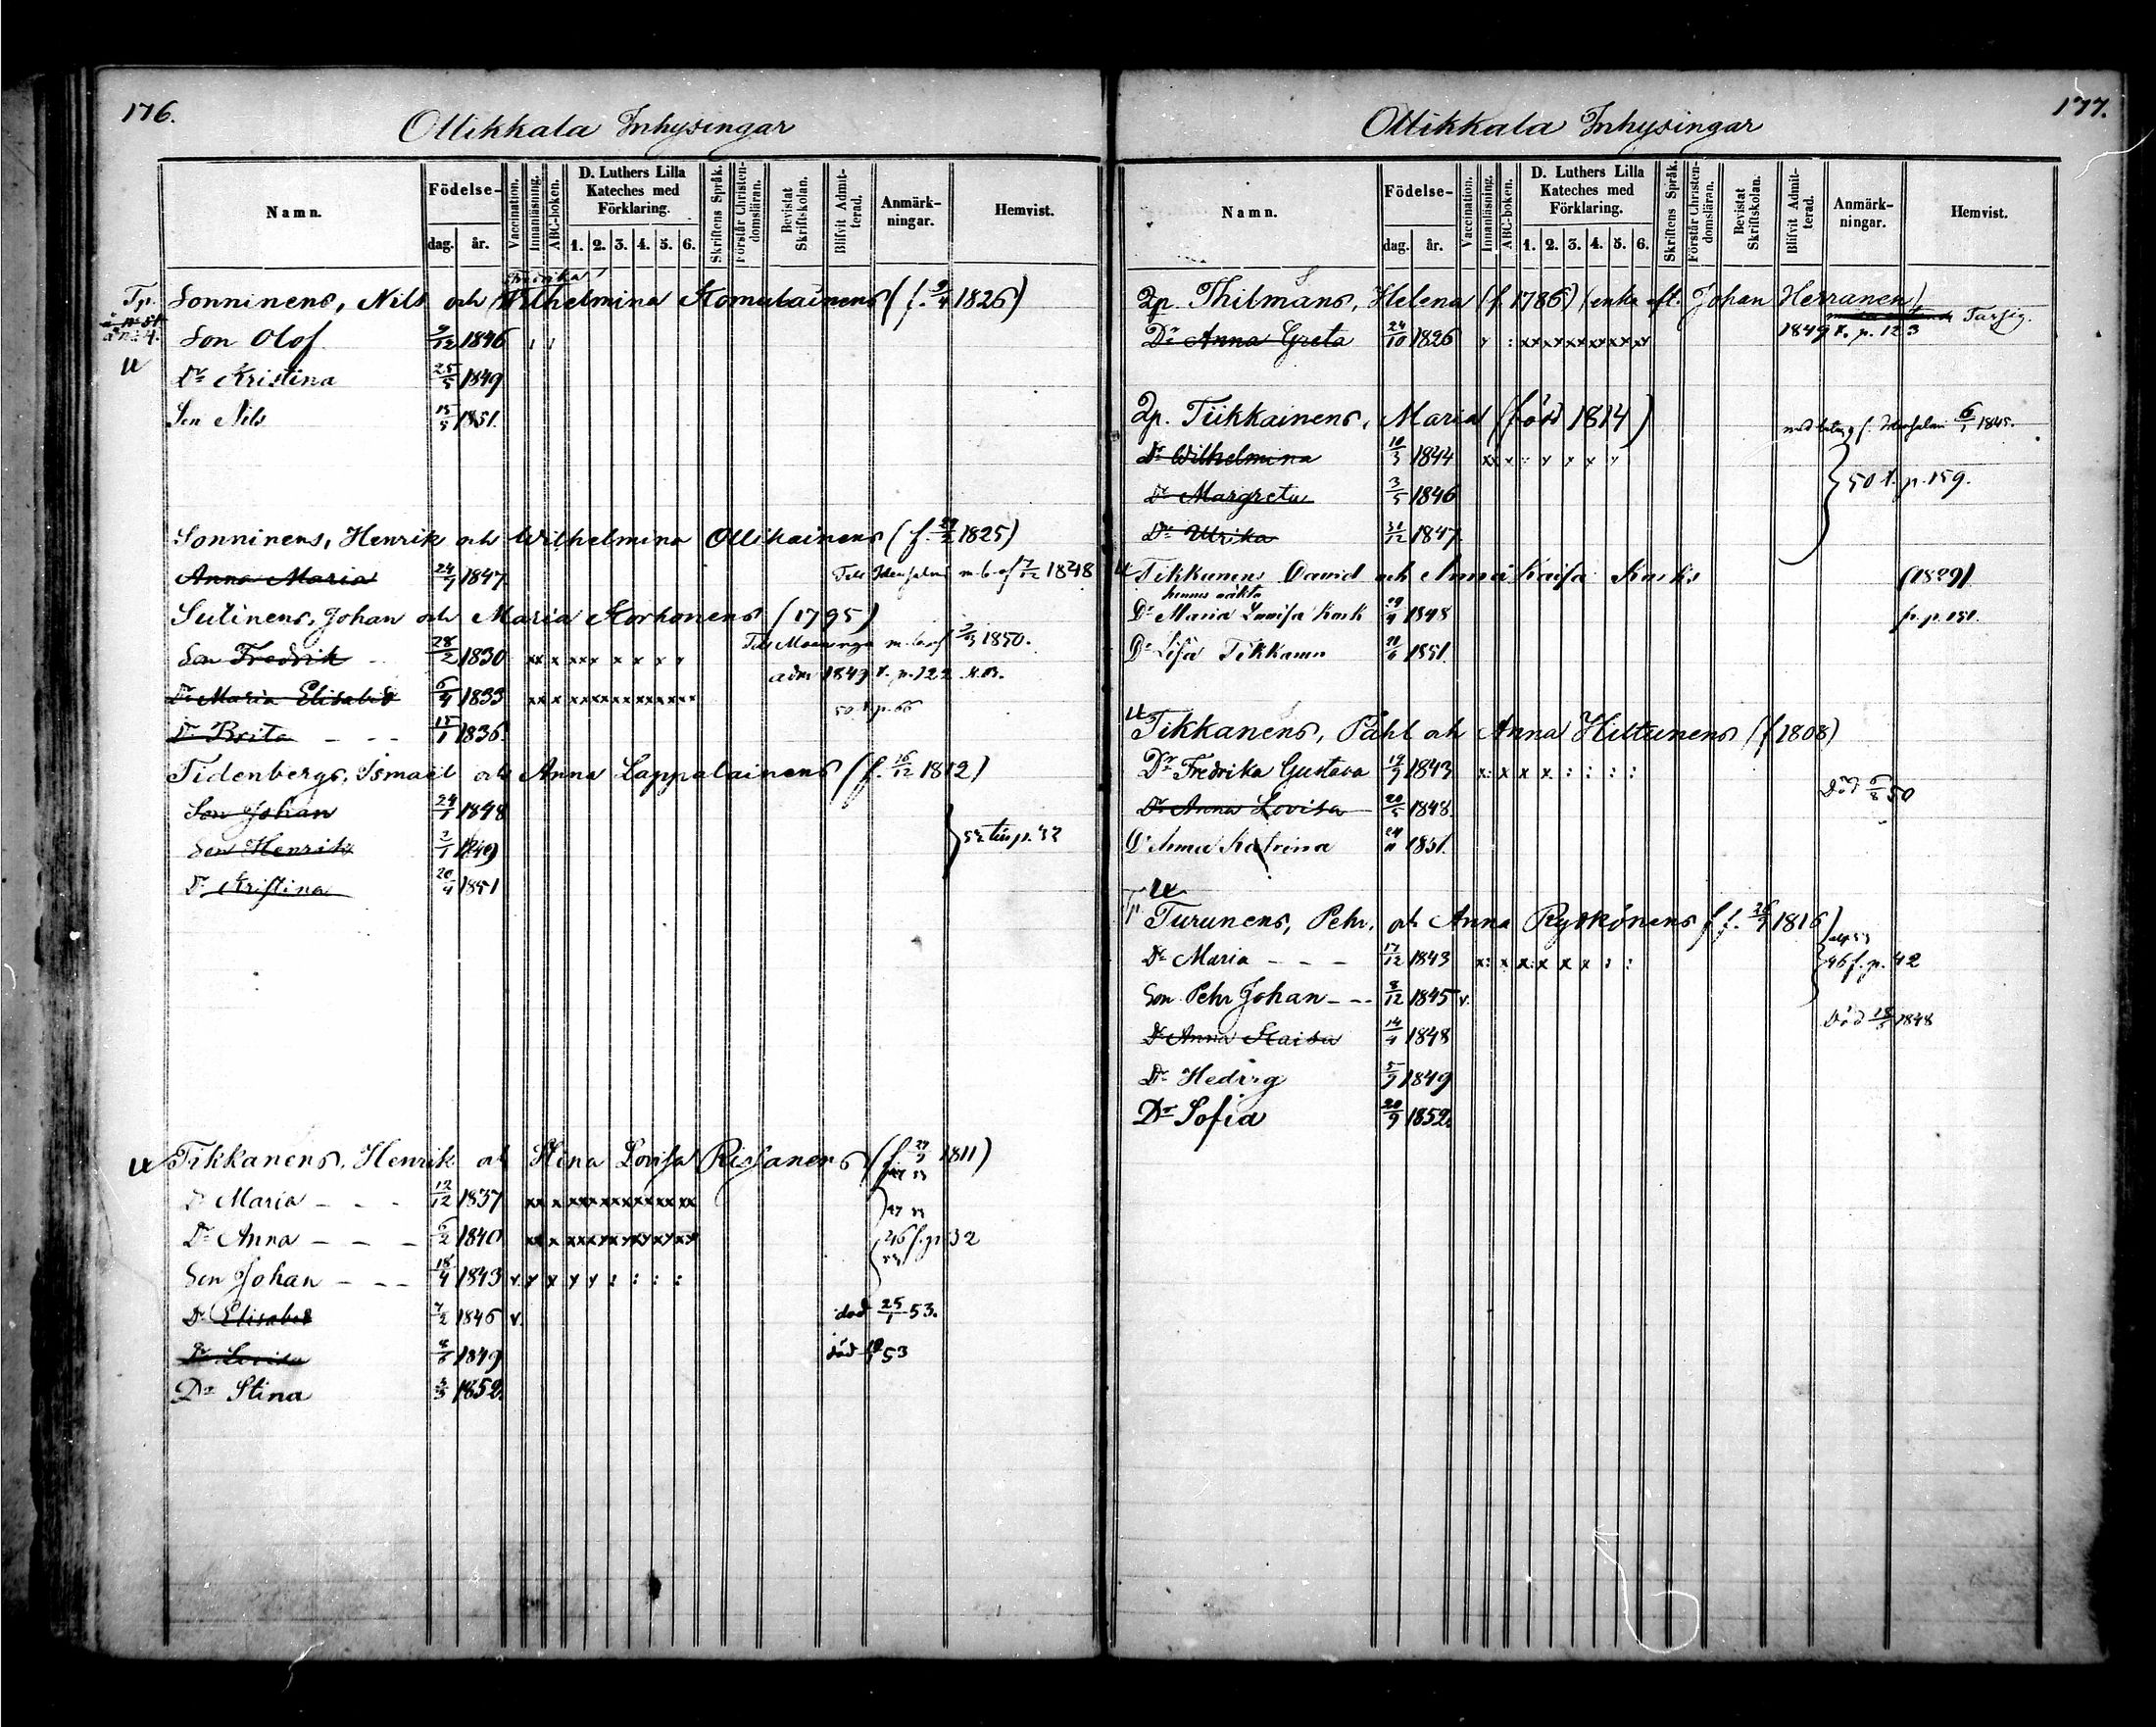 176.
Ollikkala Inhysingar
Namn.
Födelse-
dag. år.
Vaccination.
Innanläsning.
ABC-boken.
D. Luthers Lilla Kateches med Förklaring.
1. 2. 3. 4. 5. 6.
Skriftens Språk.
Förstår Christendomsläran.
Bevistat Skriftskolan.
Blifvit Admitterad.
Anmärkningar.
Hemvist.
Fredrika
Tp. Sonninens, Nils och Wilhelmina Komulainens (f. 9/4 1826)
Son Olof 9/12 1846
u
Dr Kristina 25/5 1849
Son Nils 15/5 1851.
Sonninens, Henrik och Wilhelmina Ollikainens (f. 27/2 1825)
Anna Maria 24/7 1847 Till Idensalmi m. b. af 7/12 1848
Sutinens, Johan och Maria Korhonens (1795)
Son Fredrik 28/2 1830 xx x xxx x x Till Maaninga 1850.
adm 1849 p. 122
Dr Maria Elisabet 6/4 1833 xx x xxxxxxxxxxxx
50 p. 66
Dr Brita - - - 15/1 1836.
Tidenbergs, Ismael och Anna Lappalainens (f. 16/12 1812)
Son Johan 24/1 1848
Son Henrik 2/1 1849 p. 32
Dr Kristina 20/4 1851
u Tikkanens, Henrik och Stina Lovisa Rissanens (f. 1811)
Dr Maria - - - 12/12 1837 xx x xxxxxxxxxxxx
Dr Anna - - - 6/2 1840 xx x
46 f. p. 32
Son Johan - - - 18/4 1843 v.
Dr Elisabet 7/2 1846 v. död 25/1 53.
Dr Lovisa 1849 död 53
Dr Stina 1852.
177.
Ollikkala Inhysingar
Namn.
Födelse-
dag. år.
Vaccination.
Innanläsning.
ABC-boken.
D. Luthers Lilla Kateches med Förklaring.
1. 2. 3. 4. 5. 6.
Skriftens Språk.
Förstår Christendomsläran.
Bevistat Skriftskolan.
Blifvit Admitterad.
Anmärkningar.
Hemvist.
Thilmans, Helena (f. 1786) (enka eft. Johan Herranen)
Dr Anna Greta 24/10 1826 1849 p. 123
Tiikkainens, Maria (född 1814)
1845.
Dr Wilhelmina 10/3 1844
Dr Margreta 3/5 1846 50 p. 159.
Dr Ulrika 31/12 1847
u Tikkanens David och Anna Kaisa Kosks (1829)
hennes oäkta
Dr Maria Lovisa Kosk 1848 p. 151.
Dr Lisa Tikkanen 1851
u
Tikkanens, Påhl och Anna Hiltunens (f 1808)
Dr Fredrika Gustava 19/9 1843 x: x x x : : : :
Dr Anna Lovisa 20/5 1848 Död 6/8 50
Dr Anna Katrina 1851.
u
Tp. Turunens, Pehr och Anna Rytkönens (f. 1816)
Dr Maria - - - 17/12 1843 46 f. p. 42
Son Pehr Johan - - - 8/12 1845 v.
Dr Anna Kaisa 14/4 1848 Död 1848
Dr Hedvig 5/9 1849
Dr Sofia 20/9 1852.